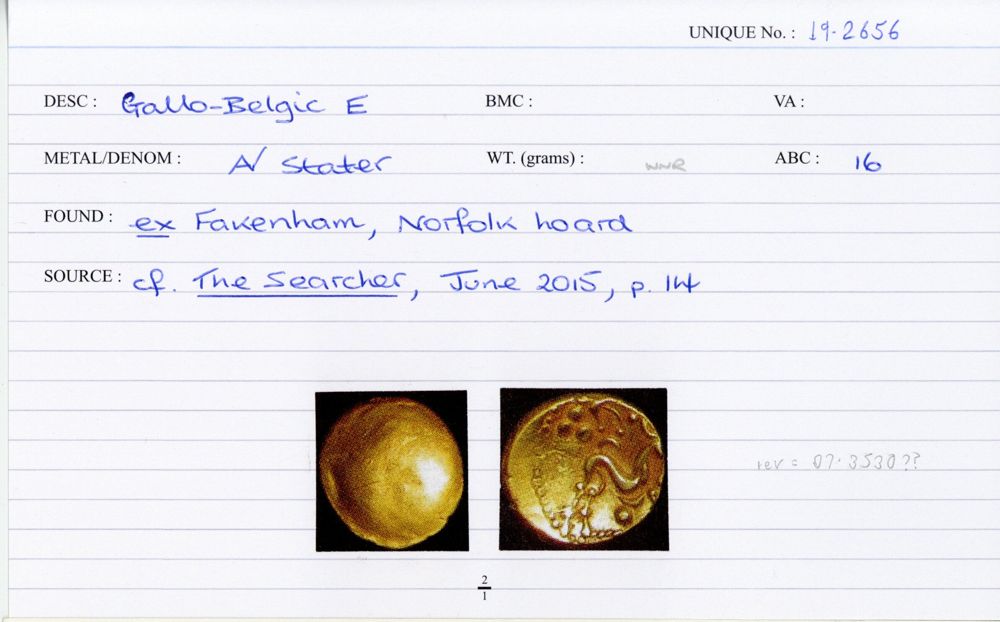 UNIQUE No. : 19.2656
DESC : Gallo-Belgic E BMC : VA :
METAL/DENOM : A/ Stater WT. (grams) : WNR ABC : 16
FOUND : ex Fakenham, Norfolk hoard
SOURCE : cf. The Searcher, June 2015, p. 14
rev = 07.3530??
2
1